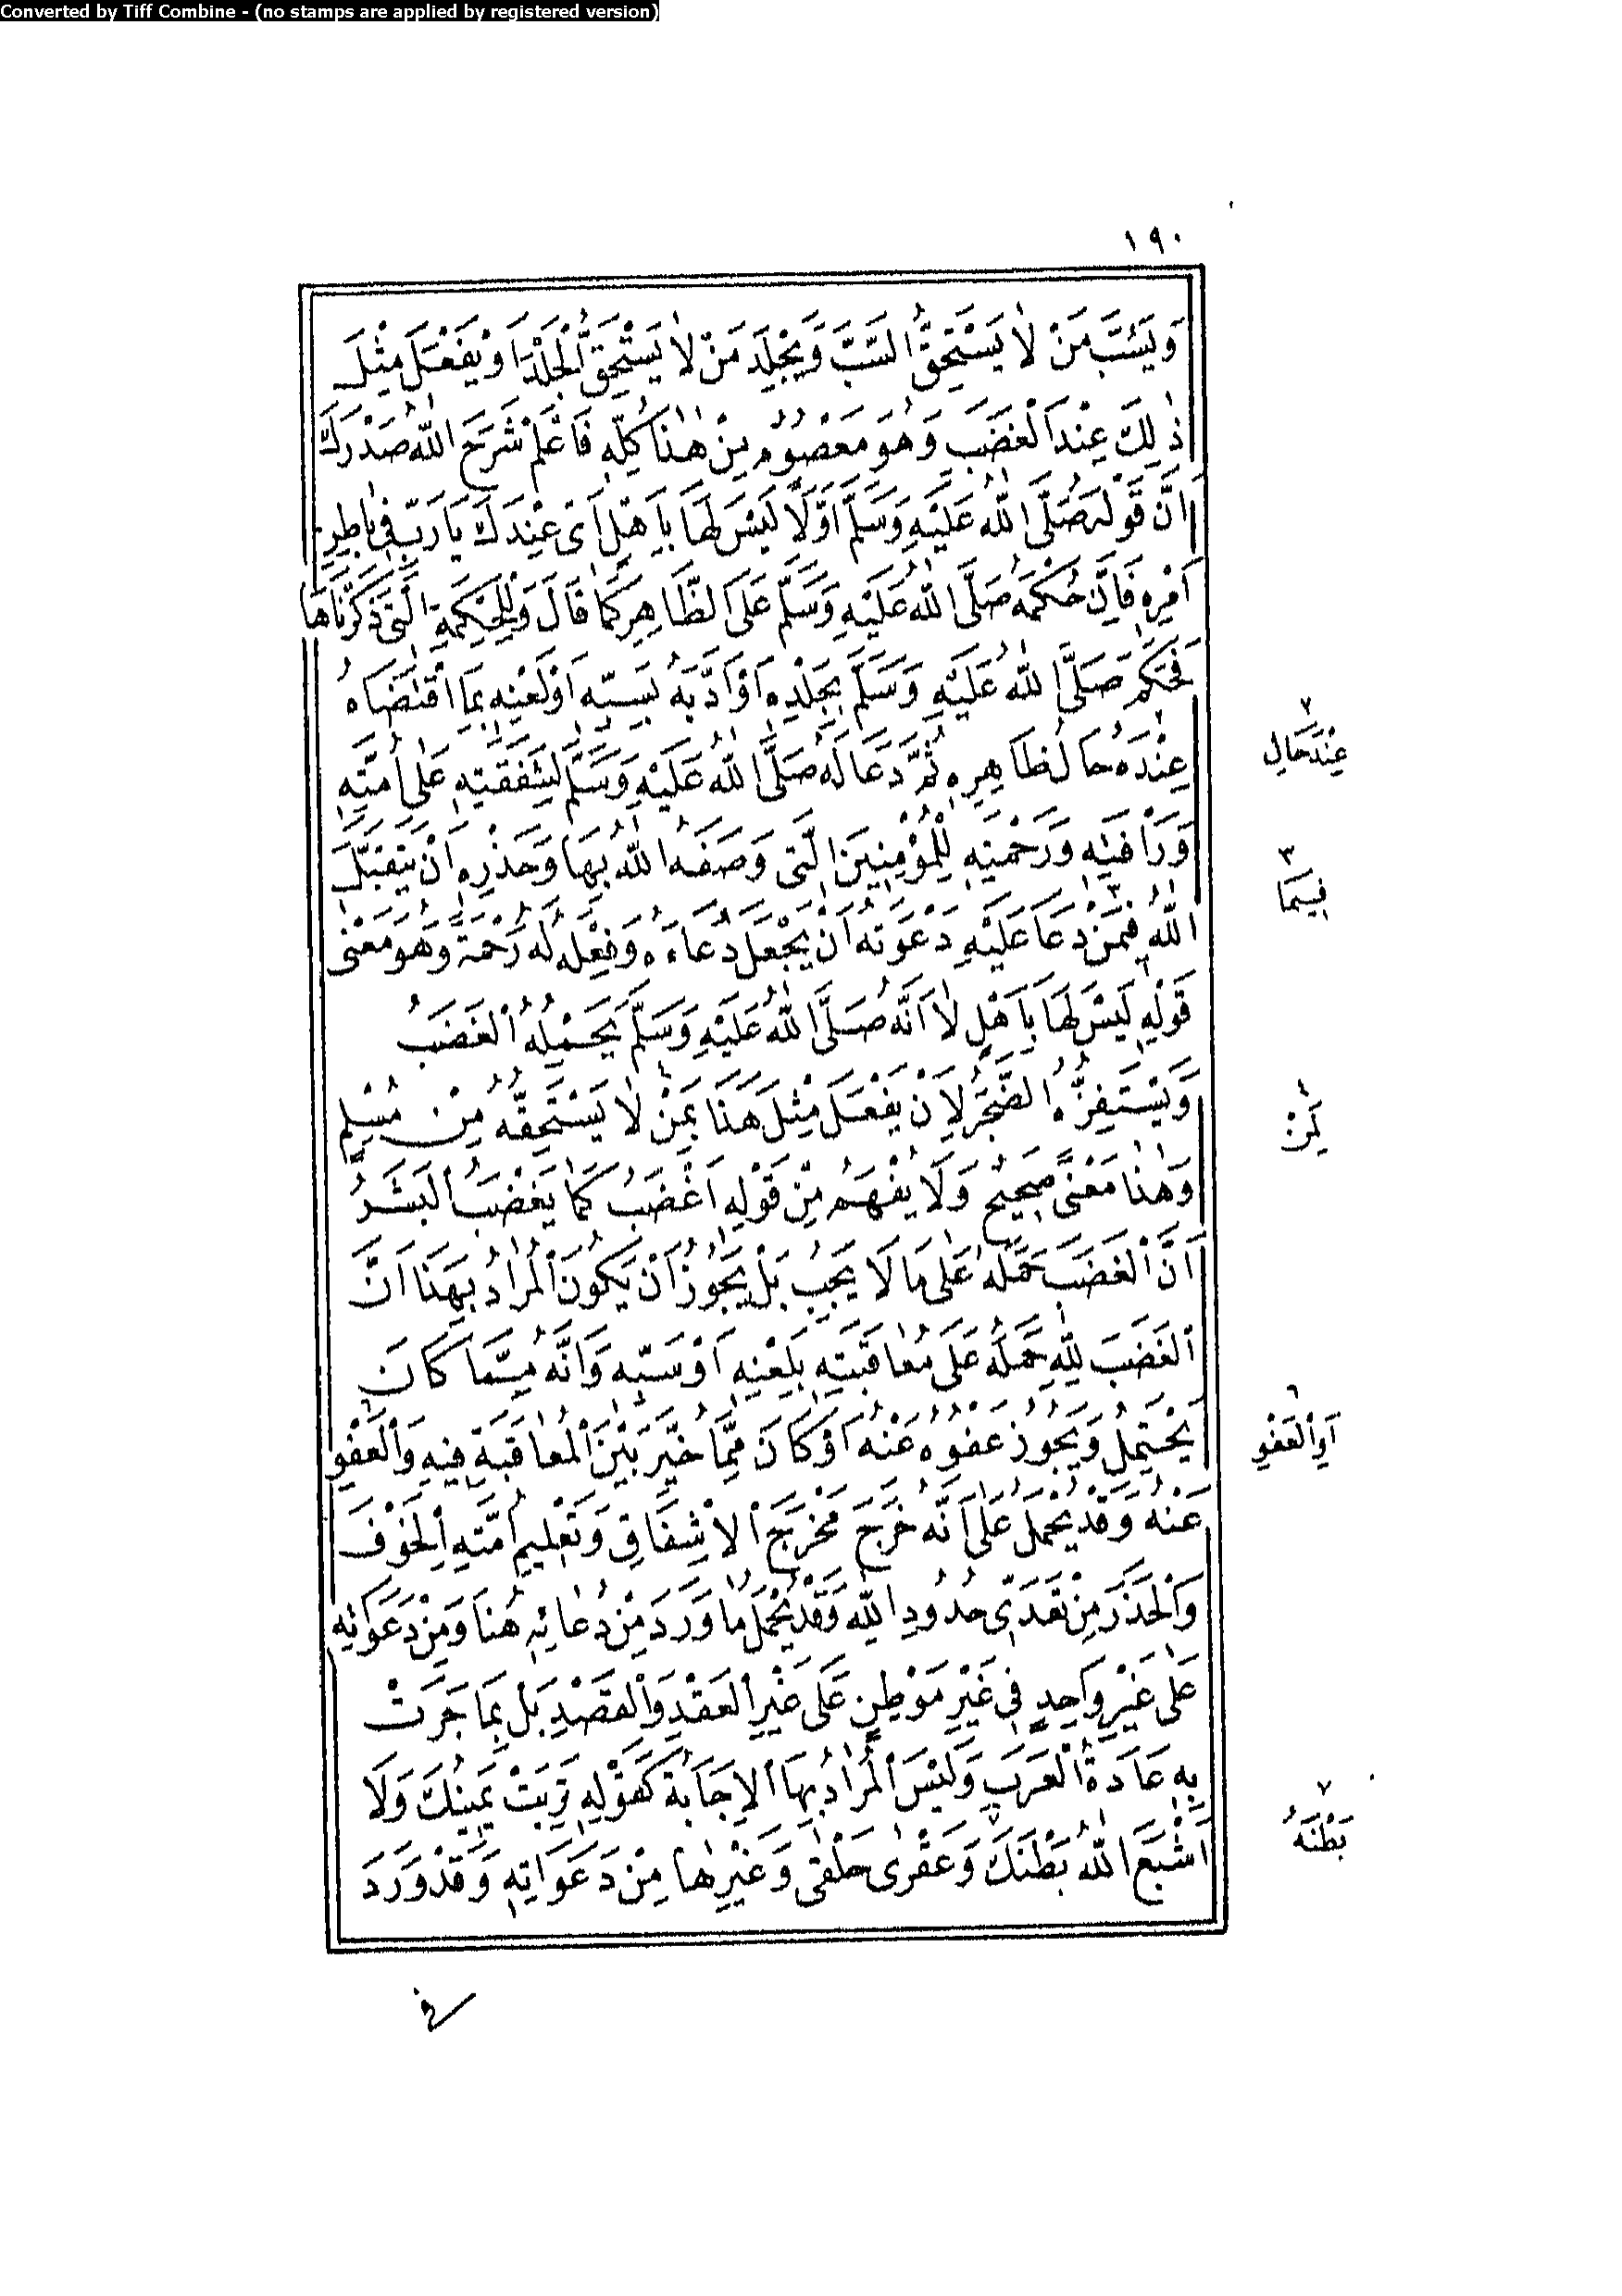 Converted by Tiff Combine - (no stamps are applied by registered version)
١٩٠
وَيَسُبَّ مَنْ لَا يَسْتَحِقُّ السَّبَّ وَيَجْلِدَ مَنْ لَا يَسْتَحِقُّ الْجَلْدَ اَوْ يَفْعَلَ مِثْلَ
ذٰلِكَ عِنْدَ الْغَضَبِ وَهُوَ مَعْصُومٌ مِنْ هٰذَا كُلِّهِ فَاعْلَمْ شَرَحَ اللّٰهُ صَدْرَكَ
اَنَّ قَوْلَهُ صَلَّى اللّٰهُ عَلَيْهِ وَسَلَّمَ اَوَّلًا لَيْسَ لَهَا بِاَهْلٍ اَىْ عِنْدَكَ يَا رَبِّ فِى بَاطِنِ
اَمْرِهِ فَاِنَّ حُكْمَهُ صَلَّى اللّٰهُ عَلَيْهِ وَسَلَّمَ عَلَى الظَّاهِرِ كَمَا قَالَ وَلِلْحِكْمَةِ الَّتِى ذَكَرْنَاهَا
فَحَكَمَ صَلَّى اللّٰهُ عَلَيْهِ وَسَلَّمَ بِجَلْدِهِ اَوْ اَدَّبَهُ بِسَبِّهِ اَوْ لَعْنِهِ بِمَا اقْتَضَاهُ
عِنْدَهُ حَالُ ظَاهِرِهِ ثُمَّ دَعَا لَهُ صَلَّى اللّٰهُ عَلَيْهِ وَسَلَّمَ لِشَفَقَتِهِ عَلٰى اُمَّتِهِ
وَرَأْفَتِهِ وَرَحْمَتِهِ لِلْمُؤْمِنِينَ الَّتِى وَصَفَهُ اللّٰهُ بِهَا وَحَذَرِهِ اَنْ يَتَقَبَّلَ
اللّٰهُ فِيمَنْ دَعَا عَلَيْهِ دَعْوَتَهُ اَنْ يَجْعَلَ دُعَاءَهُ وَفِعْلَهُ لَهُ رَحْمَةً وَهُوَ مَعْنٰى
قَوْلِهِ لَيْسَ لَهَا بِاَهْلٍ لَا اَنَّهُ صَلَّى اللّٰهُ عَلَيْهِ وَسَلَّمَ يَحْمِلُهُ الْغَضَبُ
وَيَسْتَفِزُّهُ الضَّجَرُ لِاَنْ يَفْعَلَ مِثْلَ هٰذَا بِمَنْ لَا يَسْتَحِقُّهُ مِنْ مُسْلِمٍ
وَهٰذَا مَعْنًى صَحِيحٌ وَلَا يُفْهَمُ مِنْ قَوْلِهِ اَغْضَبُ كَمَا يَغْضَبُ الْبَشَرُ
اَنَّ الْغَضَبَ حَمَلَهُ عَلٰى مَا لَا يَجِبُ بَلْ يَجُوزُ اَنْ يَكُونَ الْمُرَادُ بِهٰذَا اَنَّ
الْغَضَبَ لِلّٰهِ حَمَلَهُ عَلَى مُعَاقَبَتِهِ بِلَعْنِهِ اَوْ سَبِّهِ وَاَنَّهُ مِمَّا كَانَ
يَحْتَمِلُ وَيَجُوزُ عَفْوُهُ عَنْهُ اَوْ كَانَ مِمَّا خُيِّرَ بَيْنَ الْمُعَاقَبَةِ فِيهِ وَالْعَفْوِ
عَنْهُ وَقَدْ يُحْمَلُ عَلٰى اَنَّهُ خَرَجَ مَخْرَجَ الْاِشْفَاقِ وَتَعْلِيمِ اُمَّتِهِ الْخَوْفَ
وَالْحَذَرَ مِنْ تَعَدِّى حُدُودِ اللّٰهِ وَقَدْ يُحْمَلُ مَا وَرَدَ مِنْ دُعَائِهِ هُنَا وَمِنْ دَعَوَاتِهِ
عَلٰى غَيْرِ وَاحِدٍ فِى غَيْرِ مَوْطِنٍ عَلَى غَيْرِ الْعَقْدِ وَالْقَصْدِ بَلْ بِمَا جَرَتْ
بِهِ عَادَةُ الْعَرَبِ وَلَيْسَ الْمُرَادُ بِهَا الْاِجَابَةَ كَقَوْلِهِ تَرِبَتْ يَمِينُكَ وَلَا
اَشْبَعَ اللّٰهُ بَطْنَكَ وَعَقْرٰى حَلْقٰى وَغَيْرِهَا مِنْ دَعَوَاتِهِ وَقَدْ وَرَدَ
٢
عِنْدَ حَالِ
٣
فِيمَا
١
لِمَنْ
٦
اَوِ الْعَفْوِ
٧
بَطْنَهُ
فى